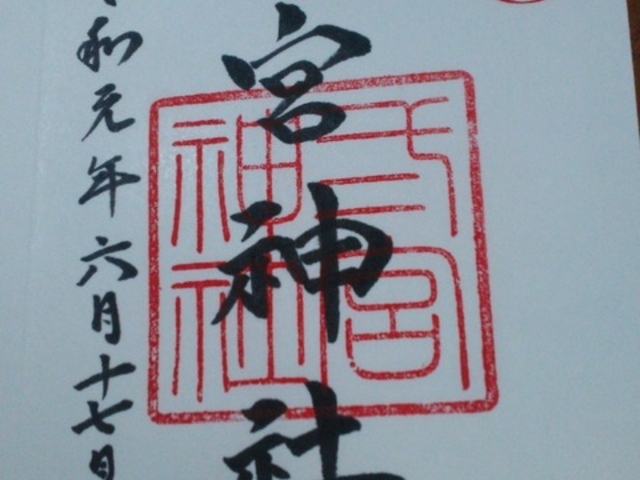 宮神社
和元年六月十七日
宮
神社